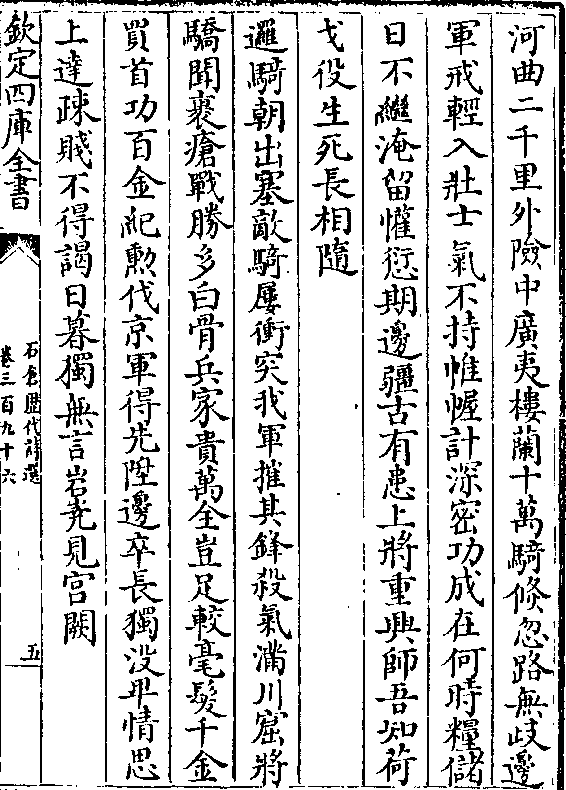 河曲二千里外險中廣夷樓蘭十萬騎倐忽路無歧邊
軍戒輕入壯士氣不持帷幄計深密功成在何時糧儲
日不繼淹留懼愆期邊疆古有患上將重興師吾知荷
戈役生死長相隨
邏騎朝出塞敵騎屢衝突我軍摧其鋒殺氣滿川窟將
驕聞裹瘡戰勝多白骨兵家貴萬全豈足較毫髮千金
買首功百金紀勲代京軍得先陞邊卒長獨沒卑情思
上達疎賤不得謁日暮獨無言岩堯見宮闕
欽定四庫全書
石倉歷代詩選
卷三百九十六
五